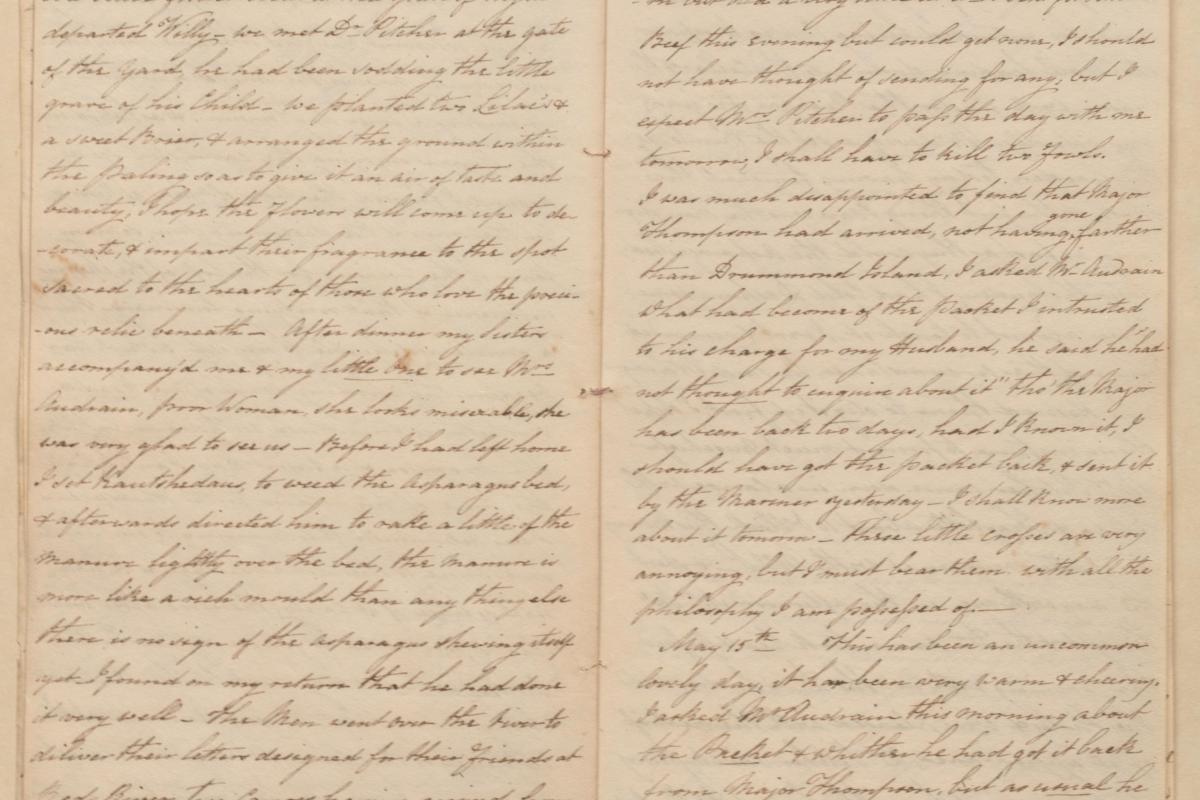 departed Willy - we met Dr Pitcher at the gate
of the Yard, he had been sodding the little
grave of his Child - we planted two Lilac's &
a sweet Brier, & arranged the ground within
the paling so as to give it an air of taste and
beauty, I hope the Flowers will come up to de-
-corate, & impart their fragrance to the spot
sacred to the hearts of those who love the preci-
-ous relic beneath - After dinner my sisters
accompany'd me & my little One to see Mrs
Audrain, poor Woman, she looks miserable, she
was very glad to see us - Before I had left home
I set Kautshedaus, to weed the Asparagus bed,
& afterwards directed him to rake a little of the
manure lightly over the bed, the manure is
more like a rich mould than any thing else
there is no sign of the asparagus shewing itself
yet I found on my return that he had done
it very well - The Men went over the river to
diliver their letters designed for their Friends at
Red River, two
Beef this evening but could get none, I should
not have thought of sending for any, but I
expect Mrs Pitcher to pass the day with me
tomorrow, I shall have to kill two Fowls.
I was much disappointed to find that Major
Thompson had arrived, not having gone farther
than Drummond Island, I asked Mr Audrain
what had become of the packet I intrusted
to his charge for my Husband, he said he "had
not thought to enquire about it" tho' the Major
has been back two days, had I known it, I
should have got the packet back, & sent it
by the Mariner yesterday - I shall know more
about it tomorrow - These little crosses are very
annoying, but I must bear them with all the
philosophy I am possessed of. —
May 15th This has been an uncommon
lovely day, it has been very warm & cheering.
I asked Mr Audrain this morning about
the Packet & whither he had got it back
from Major Thompson, but as usual he